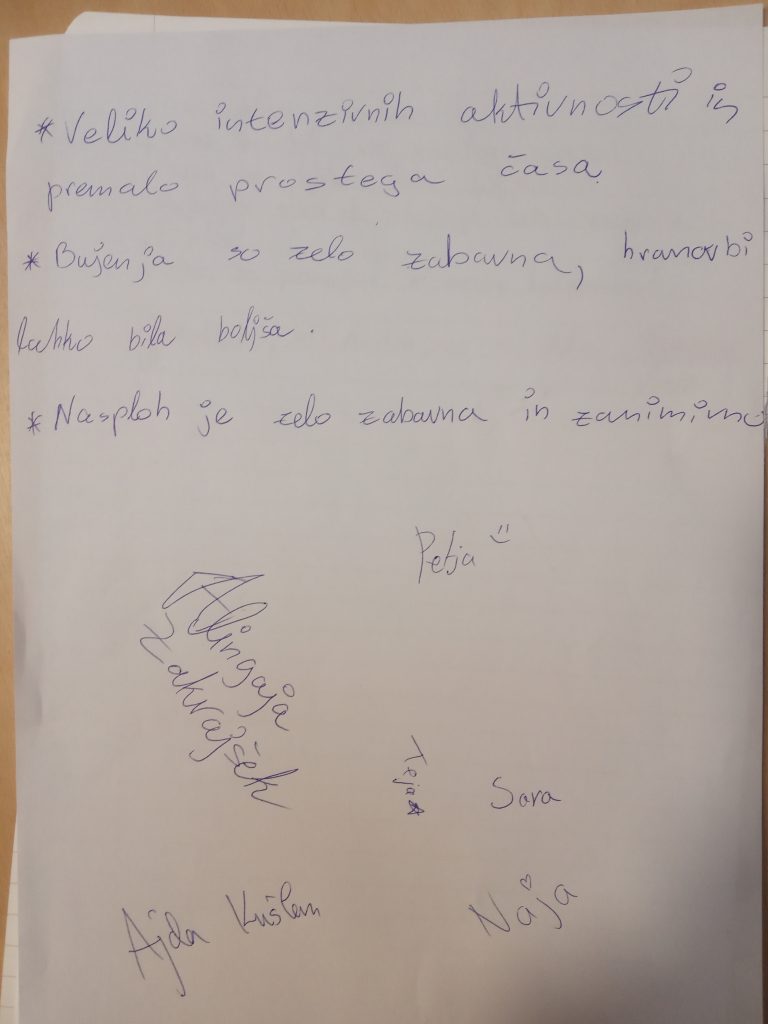 * Veliko intenzivnih aktivnosti in
premalo prostega časa.
* Bujenja so zelo zabavna, hrana bi
lahko bila boljša.
* Nasploh je zelo zabavna in zanimivo
Petja
Alingaja
Zakrajšek
Teja
Sara
Ajda
Naja